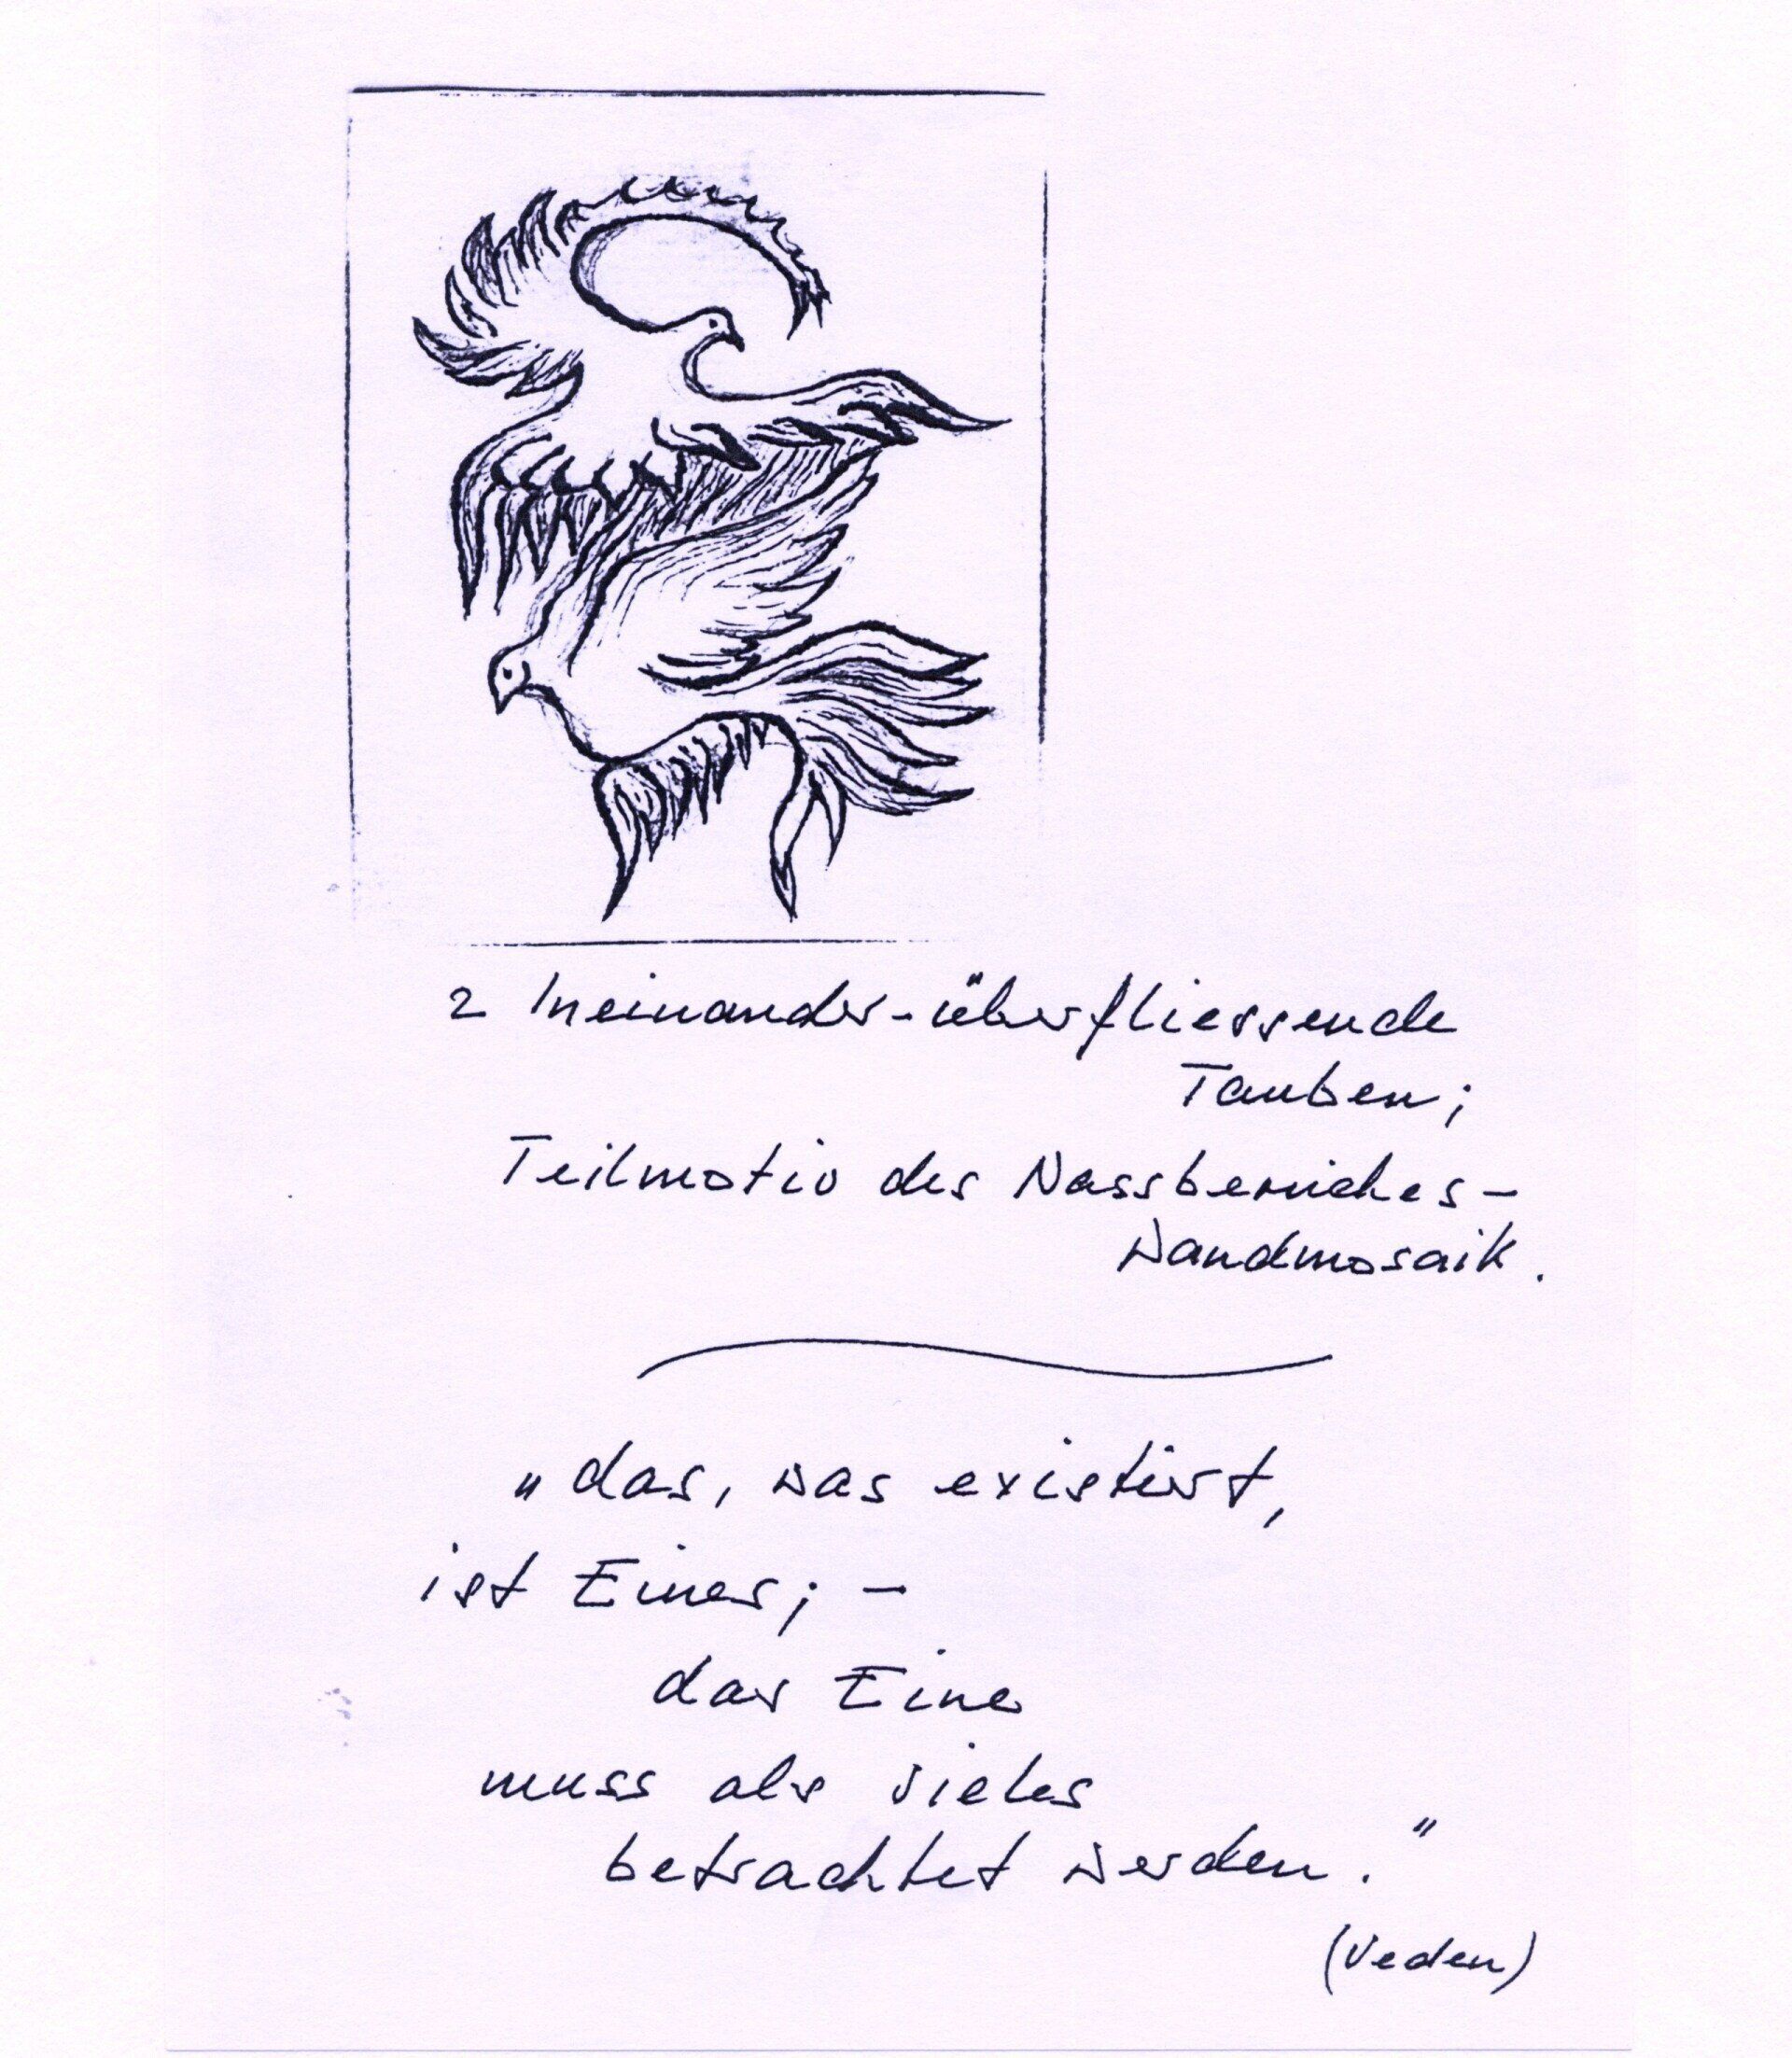 2 Ineinander-überfliessende
Tauben;
Teilmotiv des Nassbereiches-
Wandmosaik.
„das, was existiert,
ist Eines; -
das Eine
muss als vieles
betrachtet werden."
(Veden)